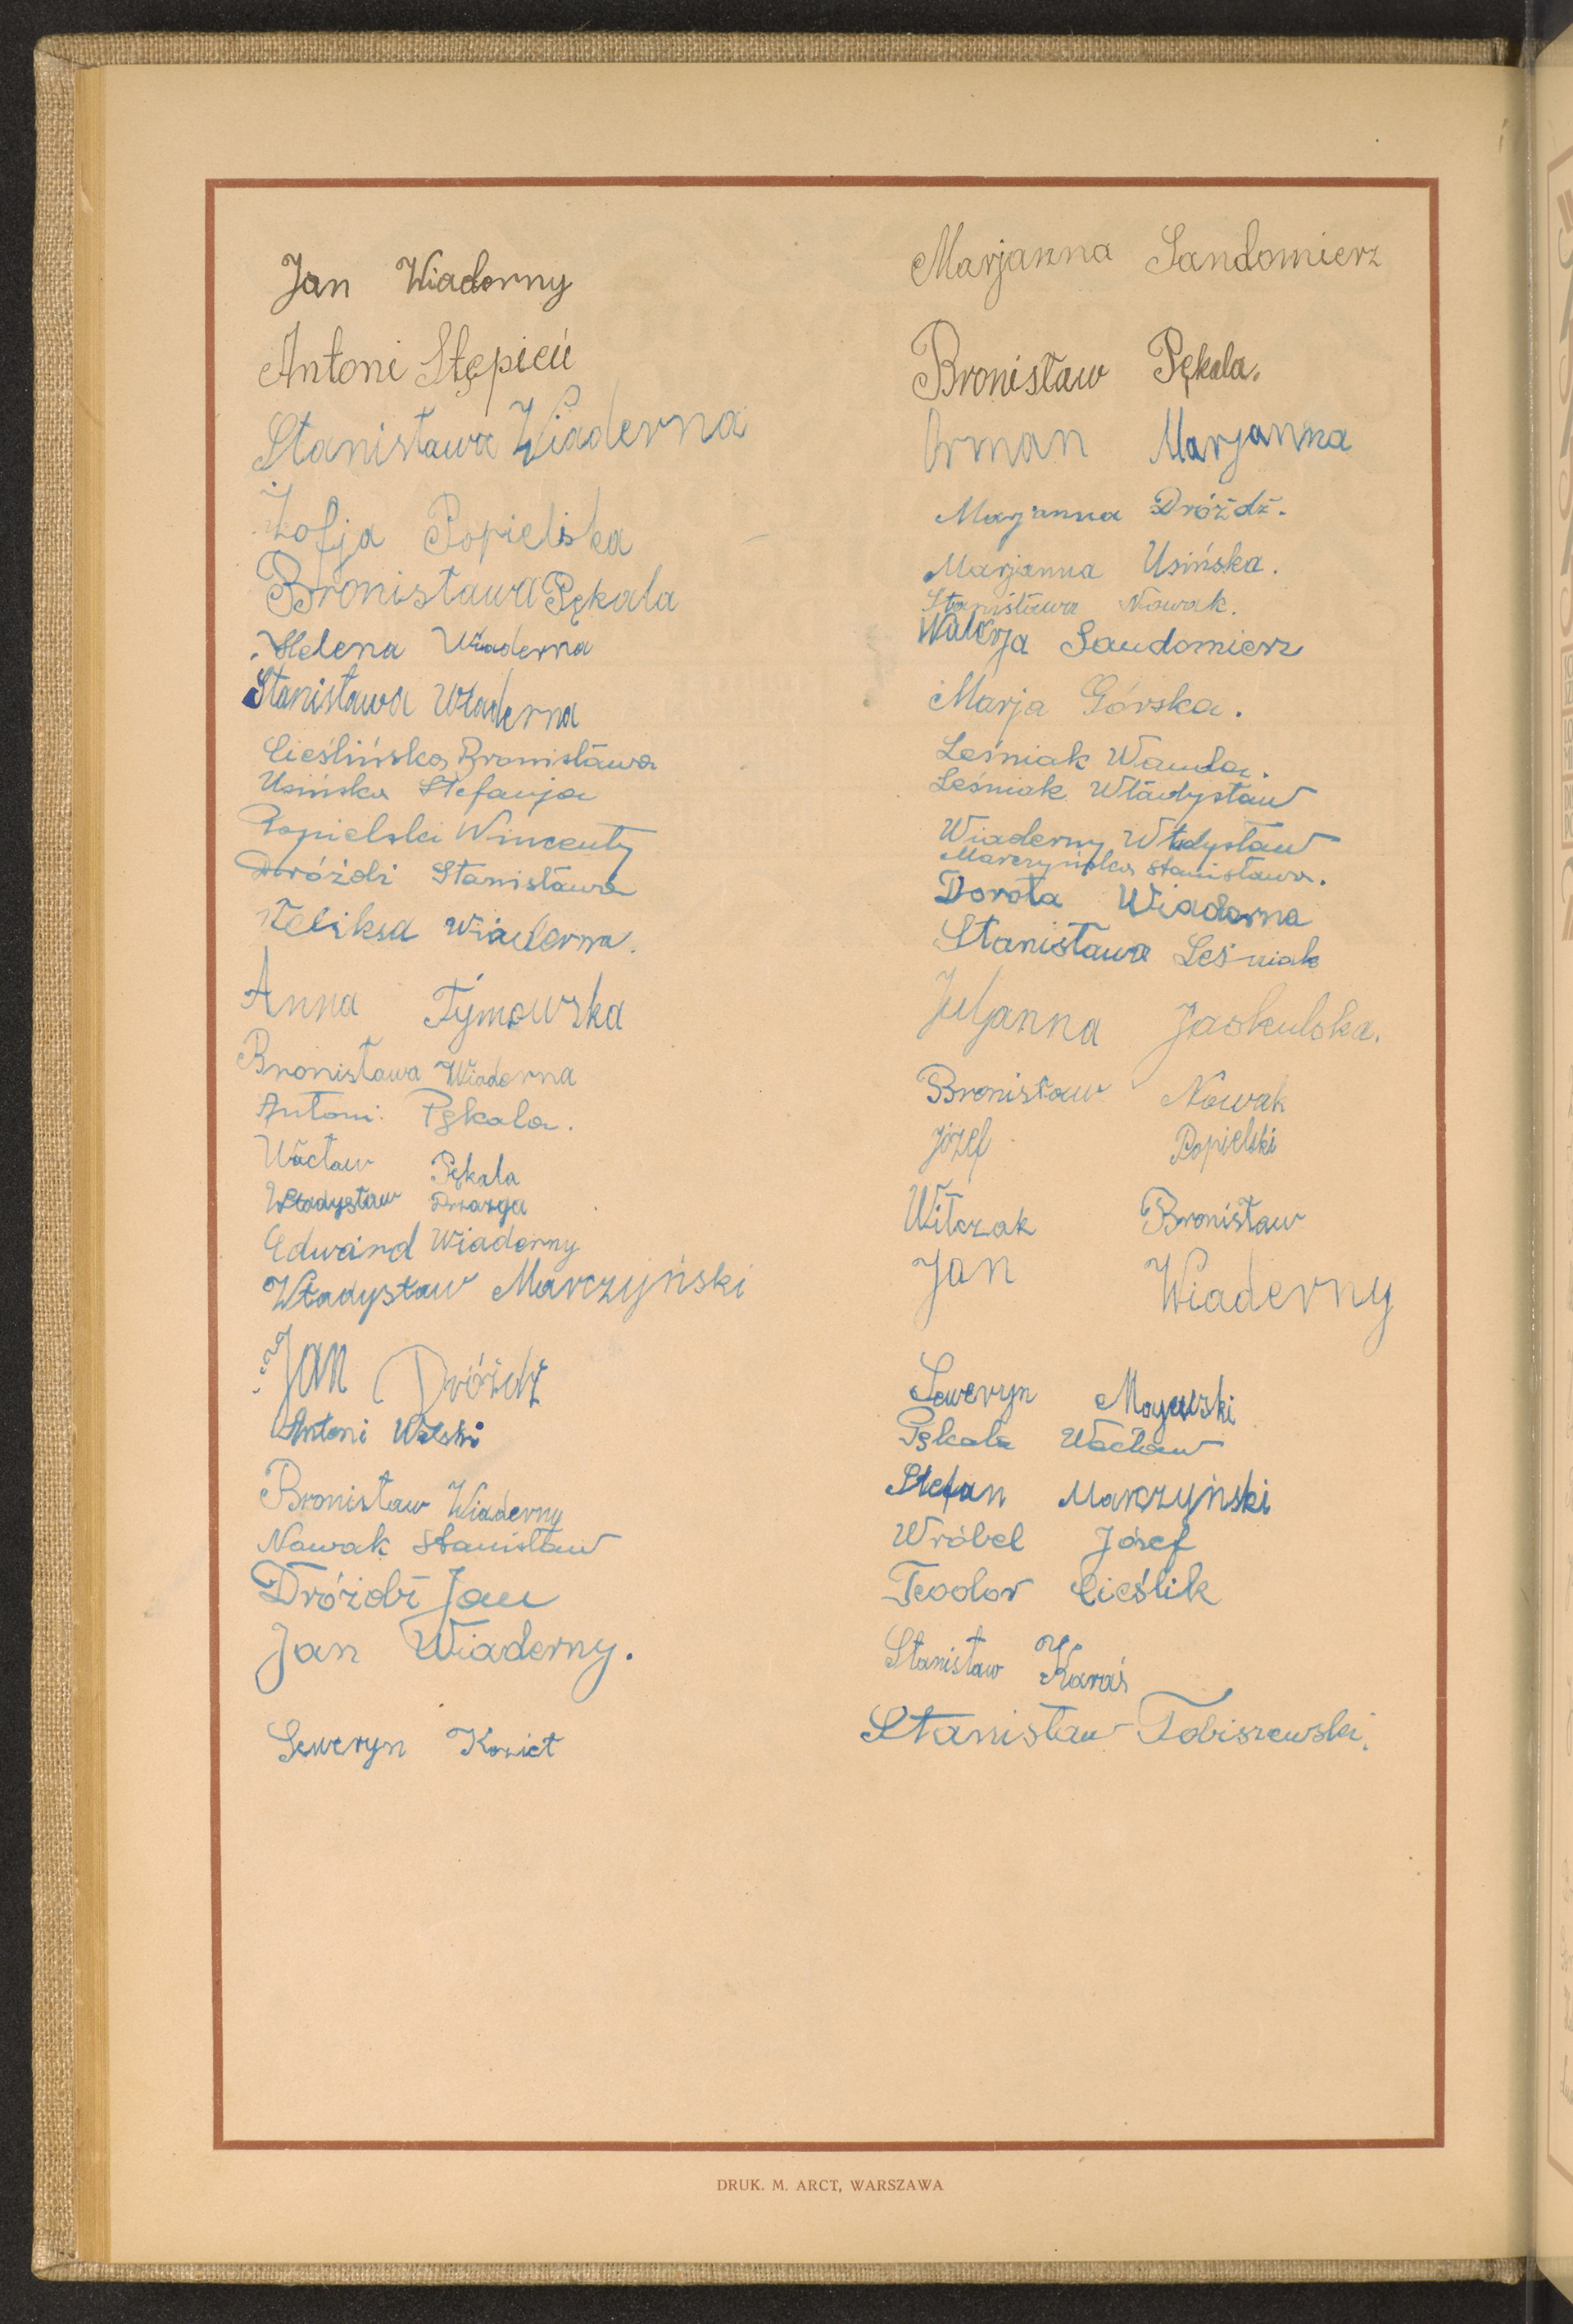 Jan Wiaderny
Antoni Stępień
Stanisława Wiaderna
Zofja Popielska
Bronisława Pękala
Helena Wiaderna
Stanisława Wiaderna
Cieślińska Bronisława
Usińska Stefanja
Popielski Wincenty
Dróżdż Stanisława
Feliksa Wiaderna.
Anna Tymowska
Bronisława Wiaderna
Antoni Pękala.
Wacław Pękala
Władysław Drzazga
Edward Wiaderny
Władysław Marczyński
Jan Dróżdż
Antoni Wolski
Bronisław Wiaderny
Nowak Stanisław
Dróżdż Jan
Jan Wiaderny.
Seweryn
Marjanna Sandomierz
Bronisław Pękala.
Marjanna
Marjanna Dróżdż.
Marjanna Usińska.
Stanisława Nowak.
Walerja Sandomierz
Marja Górska.
Leśniak Wanda.
Leśniak Władysław
Wiaderny Władysław
Marczyńska Stanisława.
Dorota Wiaderna
Stanisława Leśniak
Juljanna Jaskulska.
Bronisław Nowak
Józef Popielski
Witczak Bronisław
Jan Wiaderny
Seweryn Majewski
Pękala Wacław
Stefan Marczyński
Wróbel Józef
Teodor Cieślik
Stanisław Karaś
Stanisław Tobiszewski.
DRUK. M. ARCT, WARSZAWA